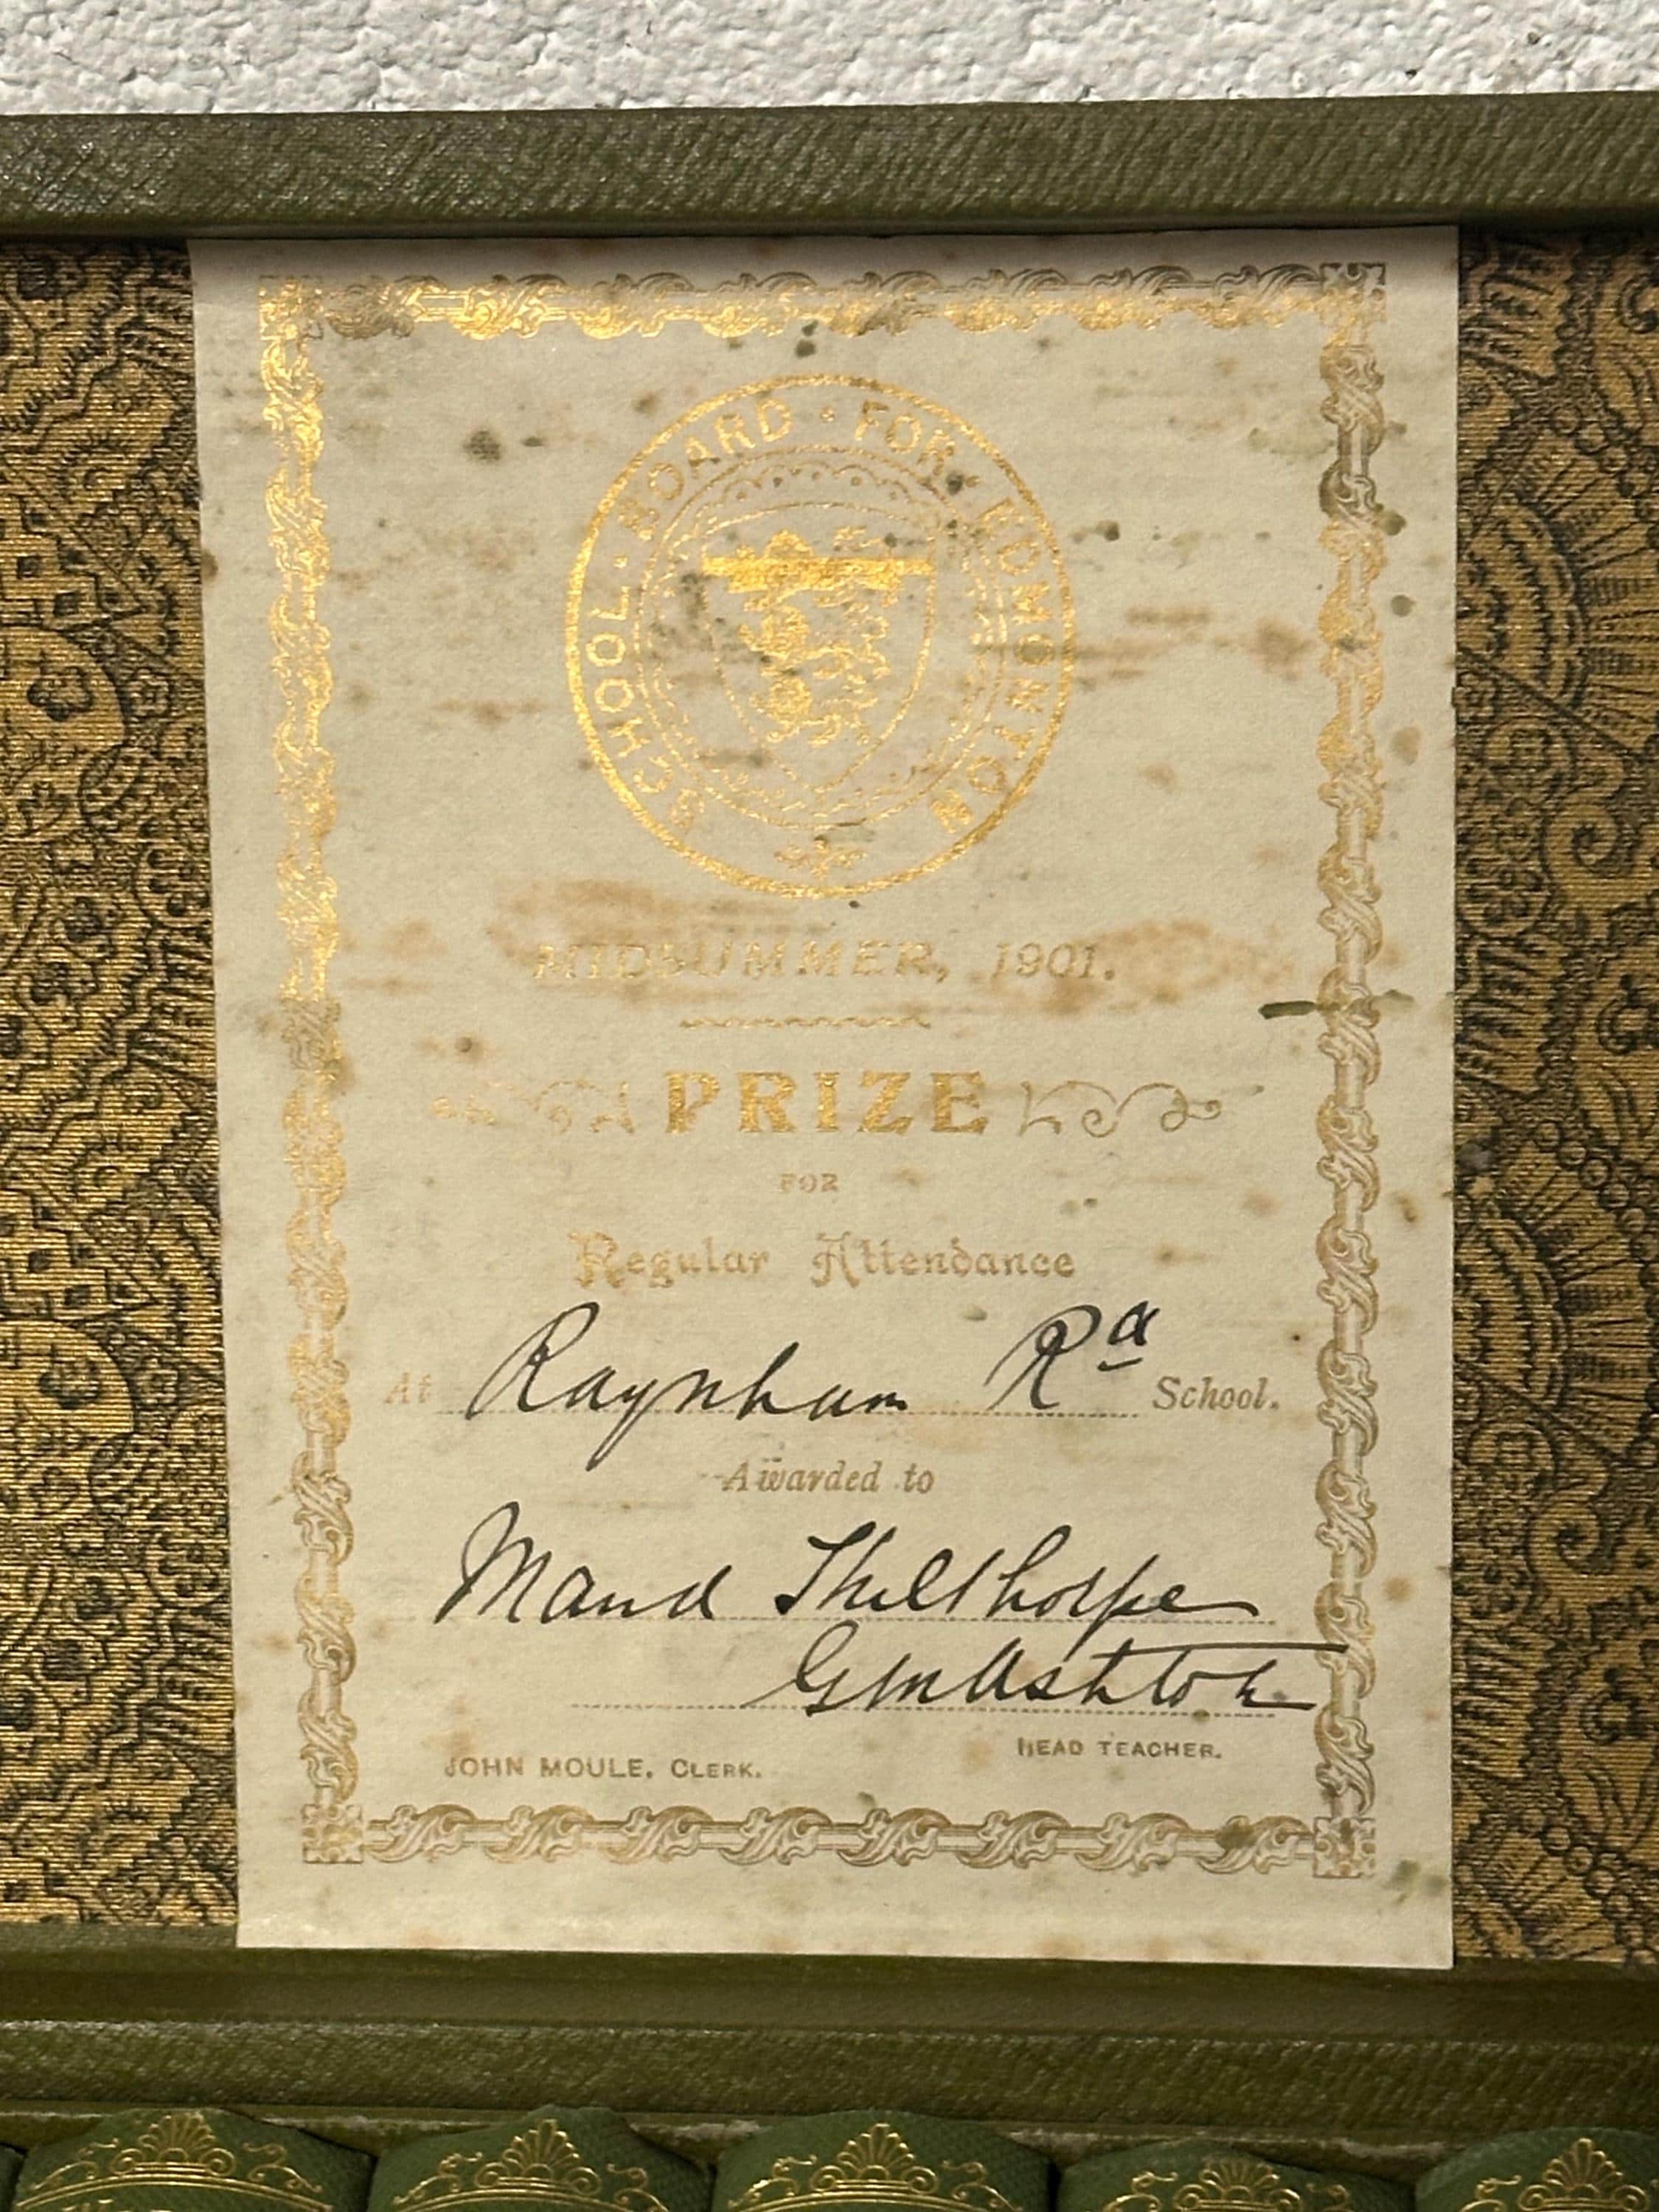 SCHOOL · BOARD · FOR · EDMONTON
MIDSUMMER, 1901.
PRIZE
FOR
Regular Attendance
At Raynham Rd School.
Awarded to
Maud Thelthorpe
G M Ashton
HEAD TEACHER.
JOHN MOULE. CLERK.